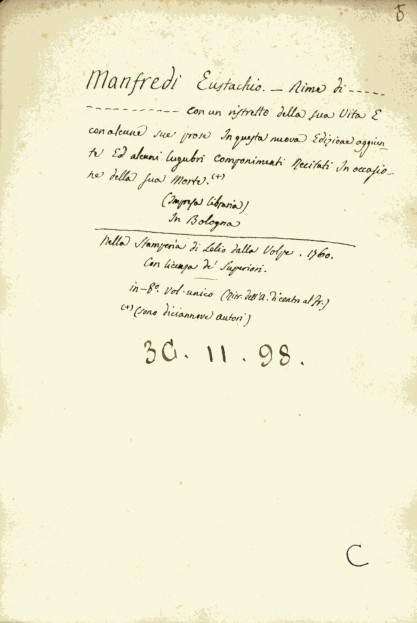 Manfredi Eustachio. — Rime di -----
------------- con un ristretto della sua Vita E
con alcune sue prose In questa nuova Edizione aggiun_
te Ed alcuni lugubri Componimenti Recitati In occasio_
ne della sua Morte. (+)
(Impresa libraria)
In Bologna
Nella Stamperia di Lelio dalla Volpe. 1760.
Con licenza de' Superiori.
in-8º. Vol. unico (Rit. dell'A. di contro al fr.)
(+) (sono diciannove autori)
36. 11. 98.
C